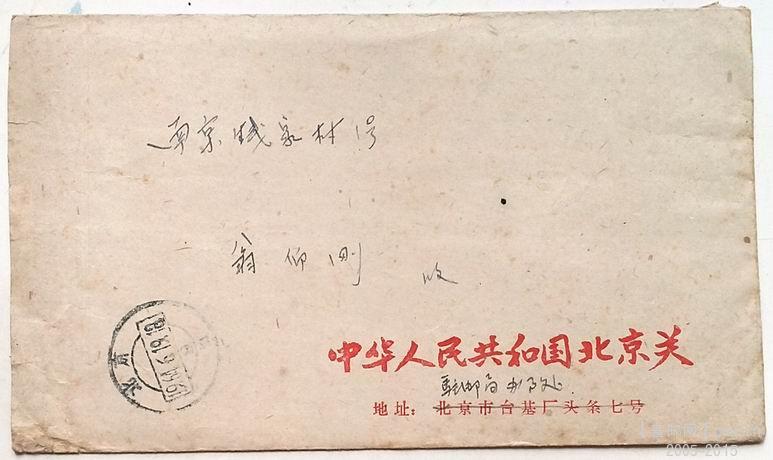 南京钱家村号
翁仰刚 收
中华人民共和国北京关
驻邮局办事处
地址：北京市台基厂头条七号
北京
2005-2015